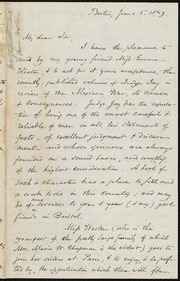 Boston, June 5, 1849
My dear Sir,
I have the pleasure to
send by my young friend Miss Emma
Weston, & to ask for it your acceptance, the
recently published volume of Judge Jay,
review of the Mexican War, its causes
& consequences. Judge Jay has the reputa-
tion of being one of the most careful &
reliable of men in all his statements of
facts – of excellent judgment & discern-
ment – and whose opinions are always
founded on a sound basis, and worthy of
the highest consideration. A book of
such a character has a value to friends
and a work to do in both countries, and may
be of service to you & your (& my) good
friends in Bristol.
Miss Weston (who is the
youngest of the pretty large family of which
Mrs. Maria W. Chapman is the eldest) goes to
join her sisters at Paris, & to enjoy, & be pro-
fited by, the opportunities which there will offer.